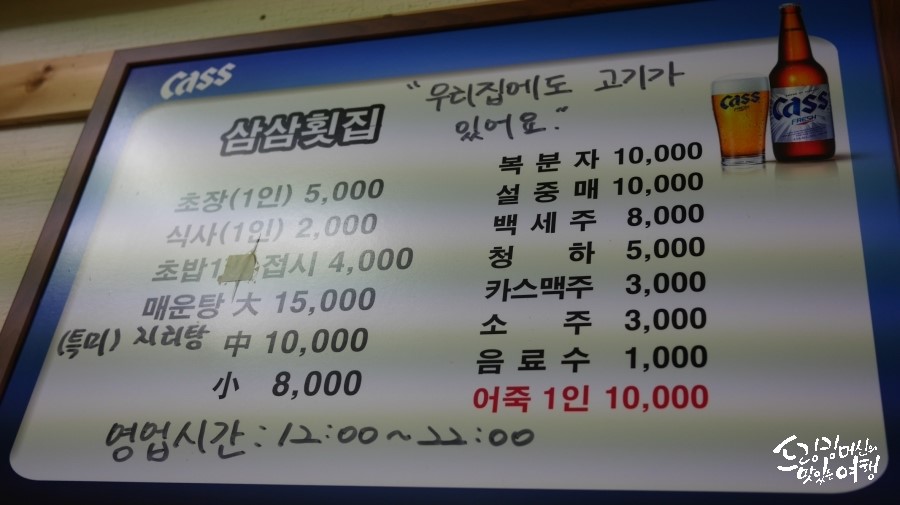 Cass
삼삼횟집
"우리집에도 고기가
있어요."
초장(1인) 5,000
식사(1인) 2,000
초밥1 접시 4,000
매운탕 大 15,000
(특미) 지리탕 中 10,000
小 8,000
복분자 10,000
설중매 10,000
백세주 8,000
청하 5,000
카스맥주 3,000
소주 3,000
음료수 1,000
어죽 1인 10,000
영업시간 : 12:00~22:00
Cass
Cass
FRESH
드링킹머신의
맛있는여행